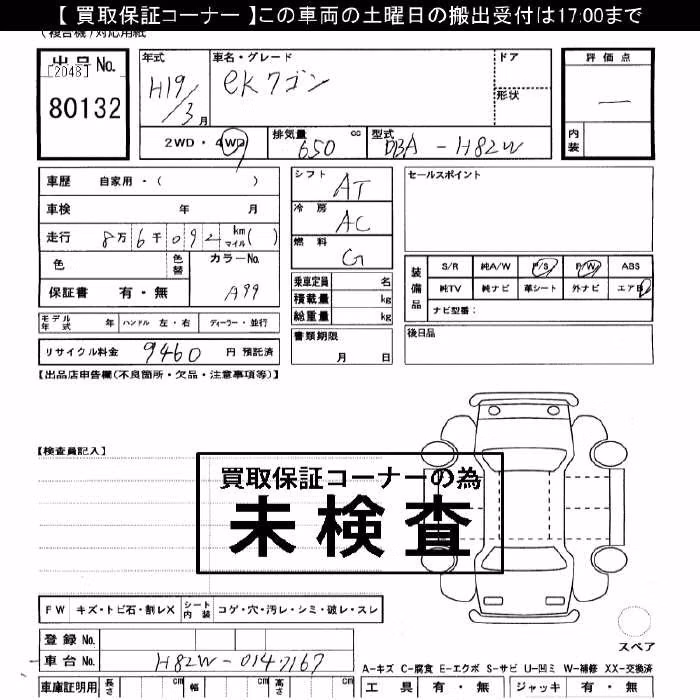 【 買取保証コーナー 】この車両の土曜日の搬出受付は17:00まで
(複合機)対応用紙
出品No.
[2048]
80132
年式
H19/3月
車名・グレード
eKワゴン
ドア
形状
評価点
—
内装
2WD・4WD
排気量 650 cc
型式 DBA-H82W
車歴 自家用・( )
車検 年 月
走行 8万6千092 km マイル( )
色 色替 カラーNo.
保証書 有・無 A99
モデル年式 年 ハンドル 左・右 ディーラー・並行
リサイクル料金 9460 円 預託済
シフト AT
冷房 AC
燃料 G
乗車定員 名
積載量 kg
総重量 kg
書類期限
月 日
セールスポイント
装備品 S/R 純A/W P/S P/W ABS
純TV 純ナビ 革シート 外ナビ エアB
ナビ型番:
後日品
【出品店申告欄(不良箇所・欠品・注意事項等)】
【検査員記入】
買取保証コーナーの為
未検査
FW キズ・トビ石・割レX シート内装 コゲ・穴・汚レ・シミ・破レ・スレ
登録No.
車台No. H82W-0147167
車庫証明用 長さ cm 幅 cm 高さ cm
スペア
A-キズ C-腐食 E-エクボ S-サビ U-凹ミ W-補修 XX-交換済
工具 有・無 ジャッキ 有・無